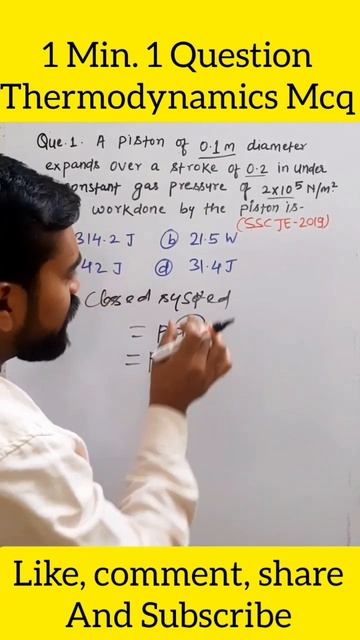 1 Min. 1 Question
Thermodynamics Mcq
Que.1. A Piston of 0.1m diameter
expands over a stroke of 0.2 in under
onstant gas pressure of 2x10⁵ N/m²
workdone by the piston is-
(SSC JE-2019)
314.2 J (b) 21.5 W
42 J (d) 31.4 J
Closed system
= p
=
Like, comment, share
And Subscribe